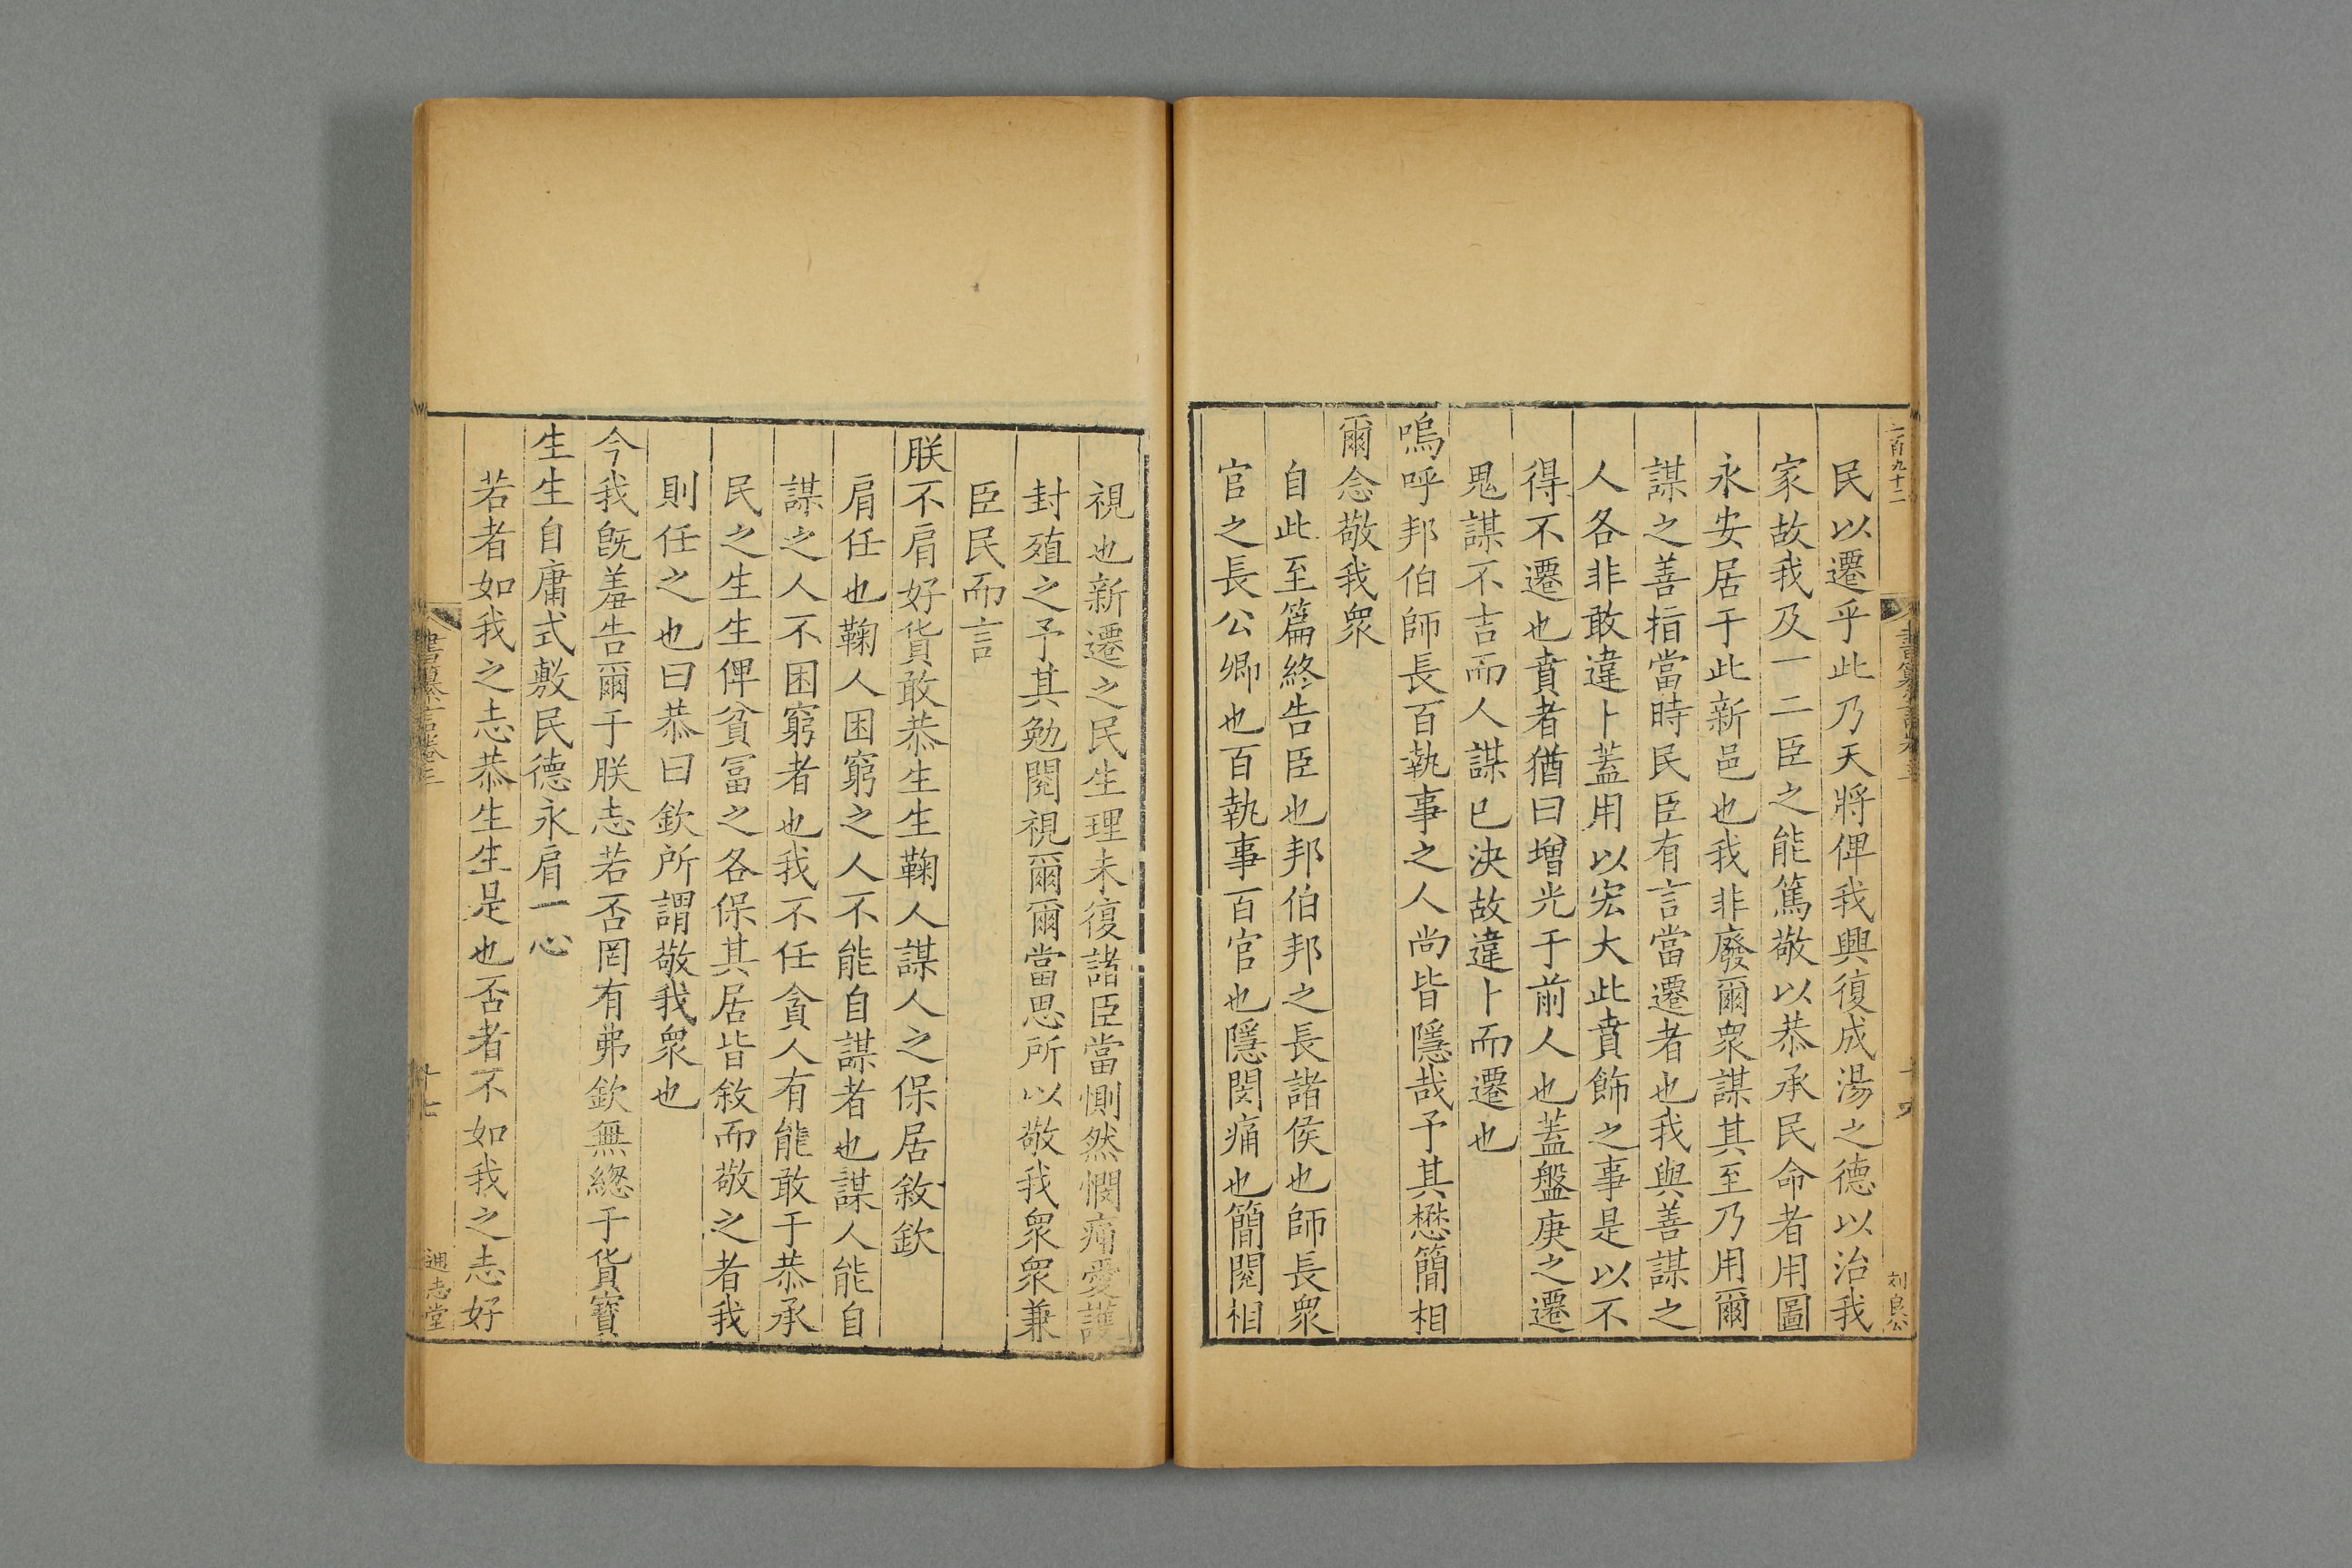 二百九十二
民以遷乎此乃天將俾我興復成湯之德以治我
家故我及一二臣之能篤敬以恭承民命者用圖
永安居于此新邑也我非廢爾衆謀其至乃用爾
謀之善指當時民臣有言當遷者也我與善謀之
人各非敢違卜蓋用以宏大此賁飾之事是以不
得不遷也賁者猶曰增光于前人也蓋盤庚之遷
鬼謀不吉而人謀已決故違卜而遷也
嗚呼邦伯師長百執事之人尚皆隱哉予其懋簡相
爾念敬我衆
自此至篇終告臣也邦伯邦之長諸侯也師長衆
官之長公卿也百執事百官也隱閔痛也簡閱相
視也新遷之民生理未復諸臣當惻然憫痛愛護
封殖之予其勉閱視爾爾當思所以敬我衆衆兼
臣民而言
朕不肩好貨敢恭生生鞠人謀人之保居敘欽
肩任也鞠人困窮之人不能自謀者也謀人能自
謀之人不困窮者也我不任貪人有能敢于恭承
民之生生俾貧富之各保其居皆敘而敬之者我
則任之也曰恭曰欽所謂敬我衆也
今我旣羞告爾于朕志若否罔有弗欽無緫于貨寶
生生自庸式敷民德永肩一心
若者如我之志恭生生是也否者不如我之志好
書纂言卷三
十七
通志堂